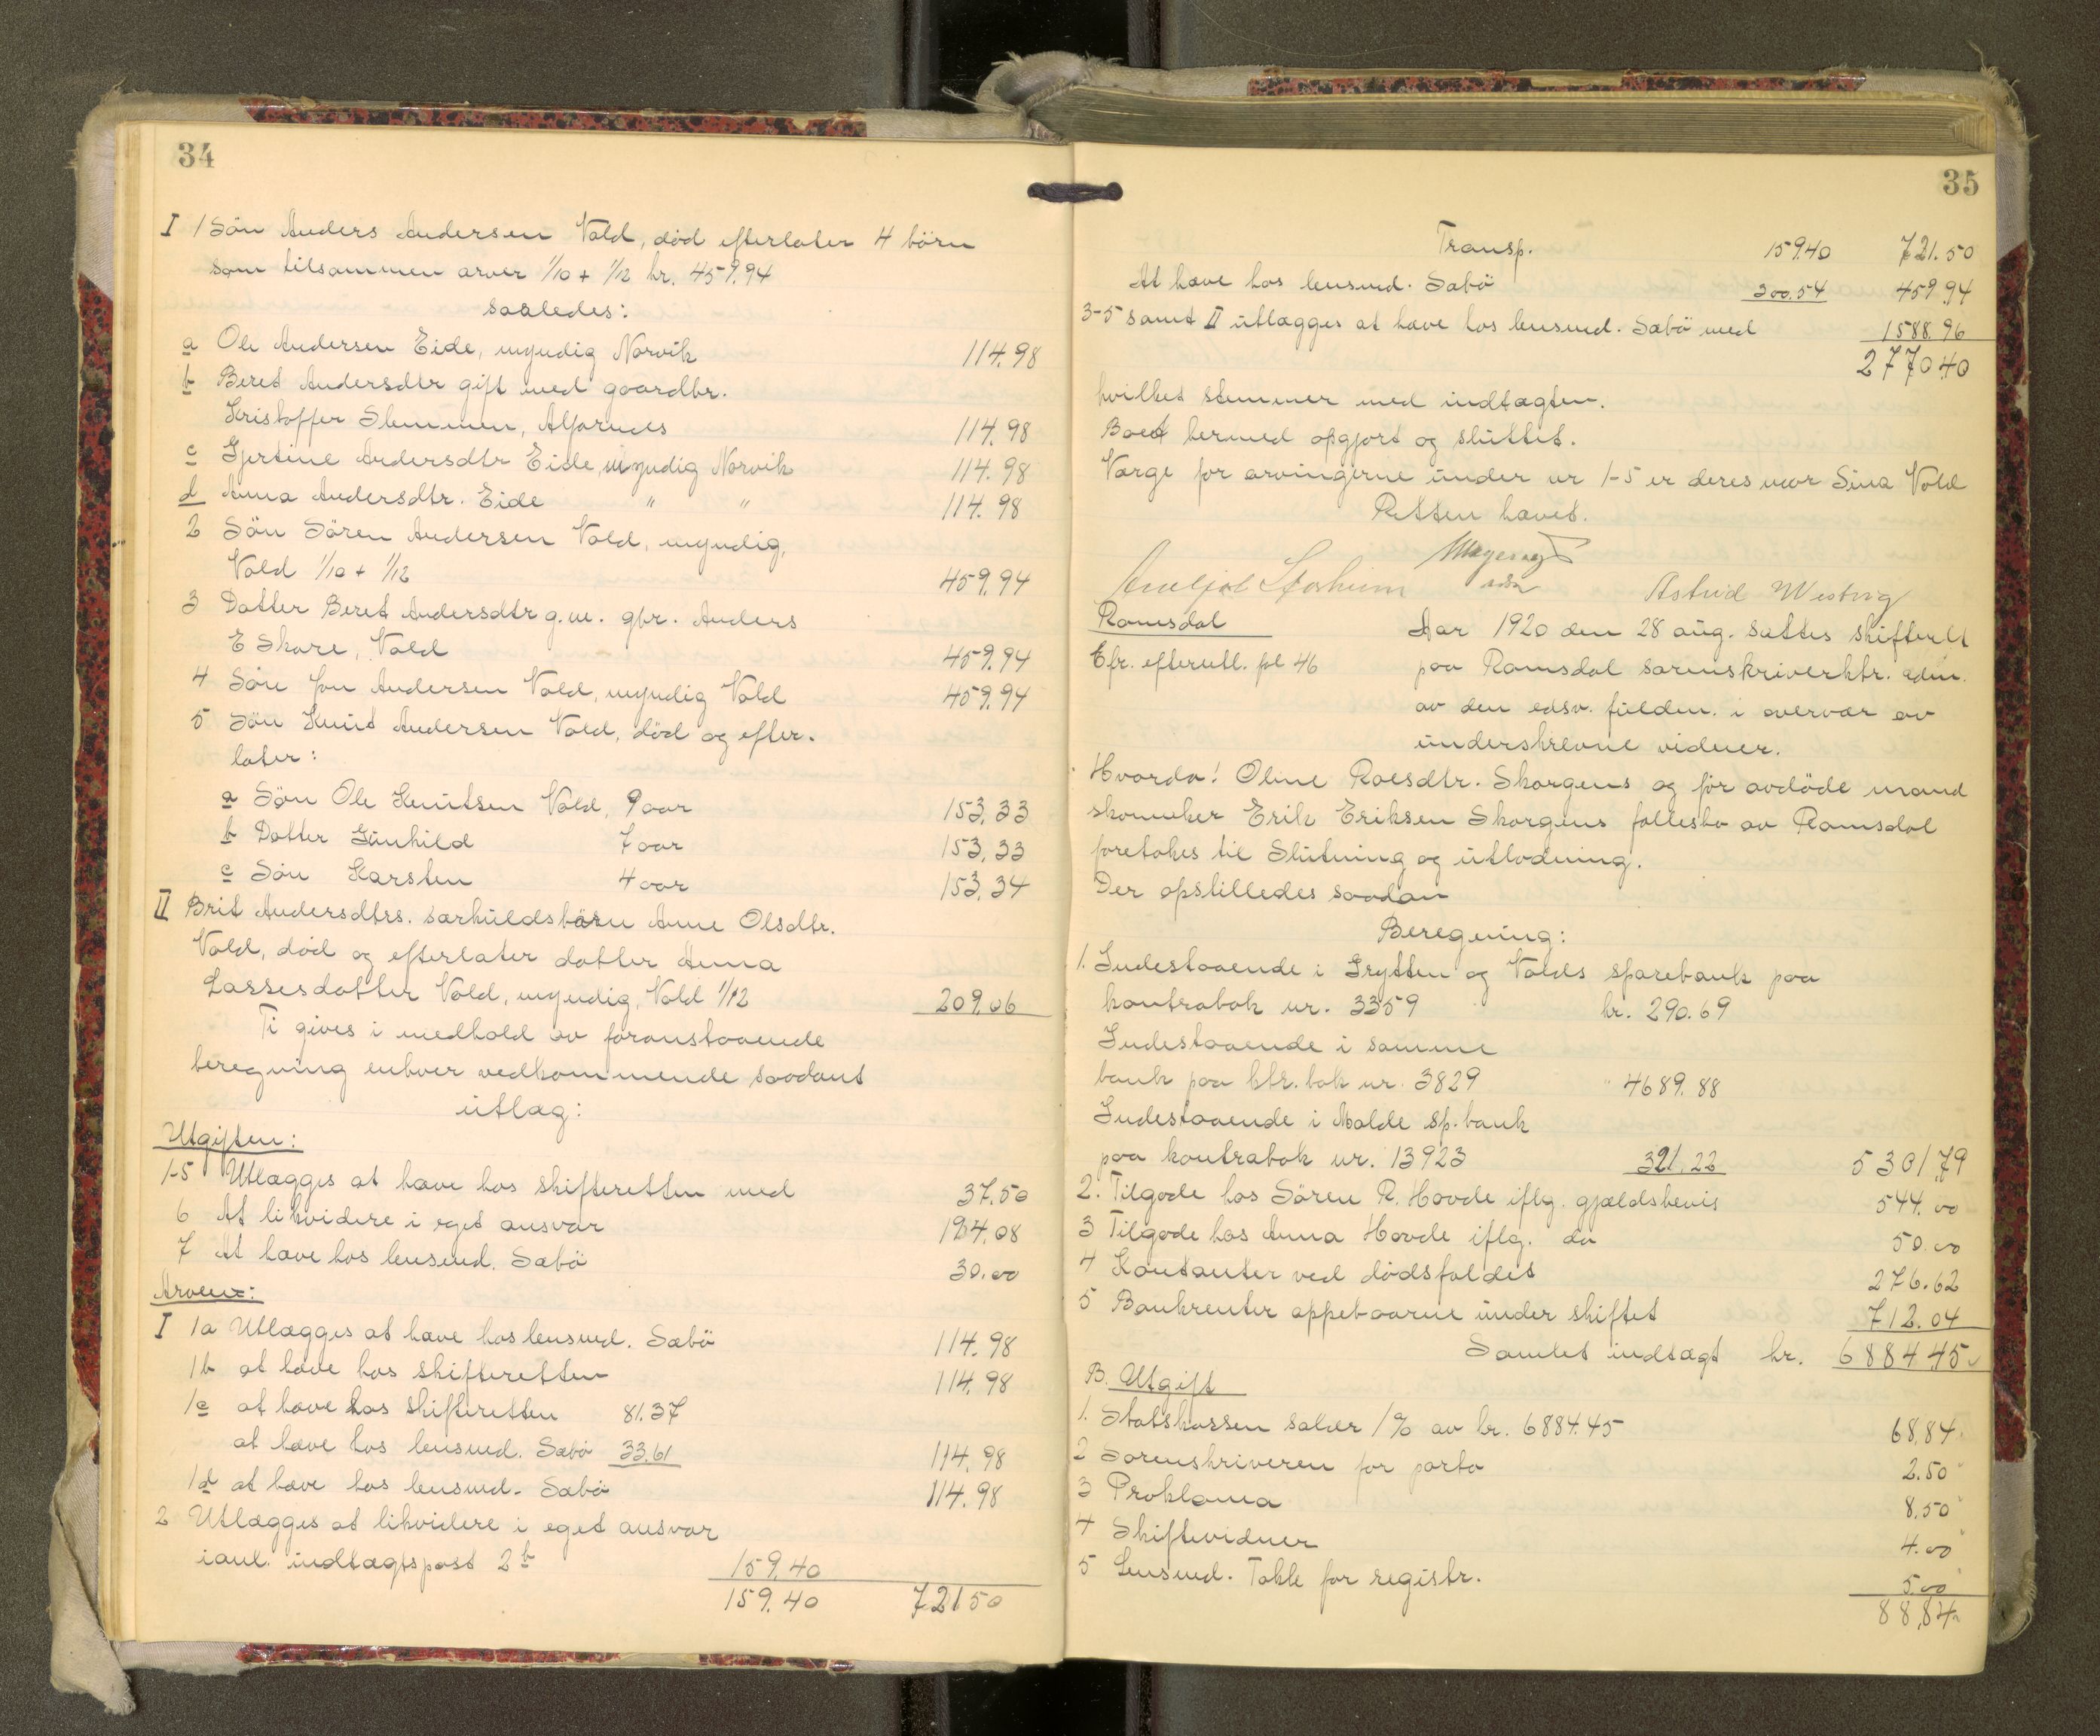 34
I 1 Søn Anders Andersen Vold, död efterlater 4 börn
som tilsammen arver 1/10 + 1/12 kr. 459.94
saaledes:
a Ole Andersen Eide, myndig Norvik 114.98
b Beret Andersdtr gift med gaardbr.
Kristoffer Slemmen, Alfarnes 114.98
c Gjertine Andersdtr Eide, myndig Norvik 114.98
d Anna Andersdtr. Eide " " 114.98
2 Sön Sören Andersen Vold, myndig,
Vold 1/10 + 1/12 459.94
3 Datter Beret Andersdtr g.m. gbr. Anders
E Skare, Vold 459.94
4 Sön Jon Andersen Vold, myndig Vold 459.94
5 Sön Knut Andersen Vold, död og efter-
later:
a Sön Ole Knutsen Vold, 9 aar 153.33
b Datter Gunhild 7 aar 153.33
c Sön Karsten 4 aar 153.34
II Brit Andersdtrs. særkuldsbarn Anne Olsdtr.
Vold, död og efterlater datter Anna
Lassesdatter Vold, myndig, Vold 1/12 209.06
Ti gives i medhold av foranstaaende
beregning enhver vedkommende saadant
utlæg:
Utgiften:
1-5 Utlægges at hæve hos skifteretten med 37.50
6 At likvidere i eget ansvar 194.08
7 At hæve hos lensmd. Sæbö 30.00
Arven:
I 1a Utlægges at hæve hos lensmd. Sæbö 114.98
1b at hæve hos skifteretten 114.98
1c at hæve hos skifteretten 81.37
at hæve hos lensmd. Sæbö 33.61 114.98
1d at hæve hos lensmd. Sæbö 114.98
2 Utlægges at likvidere i eget ansvar
ianl. indtægtspost 2b 159.40
159.40 721 50
35
Transp. 159.40 721.50
At hæve hos lensmd. Sæbö 300.54 459.94
3-5 samt II utlægges at hæve hos lensmd. Sæbö med 1588.96
2770.40
hvilket stemmer med indtægten.
Boet hermed opgjort og sluttet.
Værge for arvingerne under nr 1-5 er deres mor Sina Vold
Retten hævet.
Astrid Westvig
Romsdal
Aar 1920 den 28 aug. sattes skifterett
Efr. efterutl. fol 46
paa Romsdal sorenskriverktr. adm.
av den edsv. fuldm. i overvær av
underskrevne vidner.
Hvorda: Oline Roesdtr. Skorgens og før avdöde mand
skomaker Erik Eriksen Skorgens fællesbo av Romsdal
foretokes til Slutning og utlodning.
Der opstilledes saadan
Beregning:
1. Indestaaende i Grytten og Volds sparebank paa
kontrabok nr. 3359 kr. 290.69
Indestaaende i samme
bank paa ktr. bok nr. 3829 " 4689.88
Indestaaende i Molde sp. bank
paa kontrabok nr. 13923 321.22 5301.79
2. Tilgode hos Sören R. Hovde iflg. gjældsbevis 544.00
3 Tilgode hos Anna Hovde iflg. do 50.00
4 Kontanter ved dödsfaldet 276.62
5 Bankrenter oppebaarne under skiftet 712.04
Samlet indtægt kr. 6884.45
B. Utgift
1. Statskassen salær 1% av kr. 6884.45 68.84
2 Sorenskriveren for porto 2.50
3 Proklama 8.50
4 Skiftevidner 4.00
5 Lensmd. Tokle for registr. 5.00
88.84